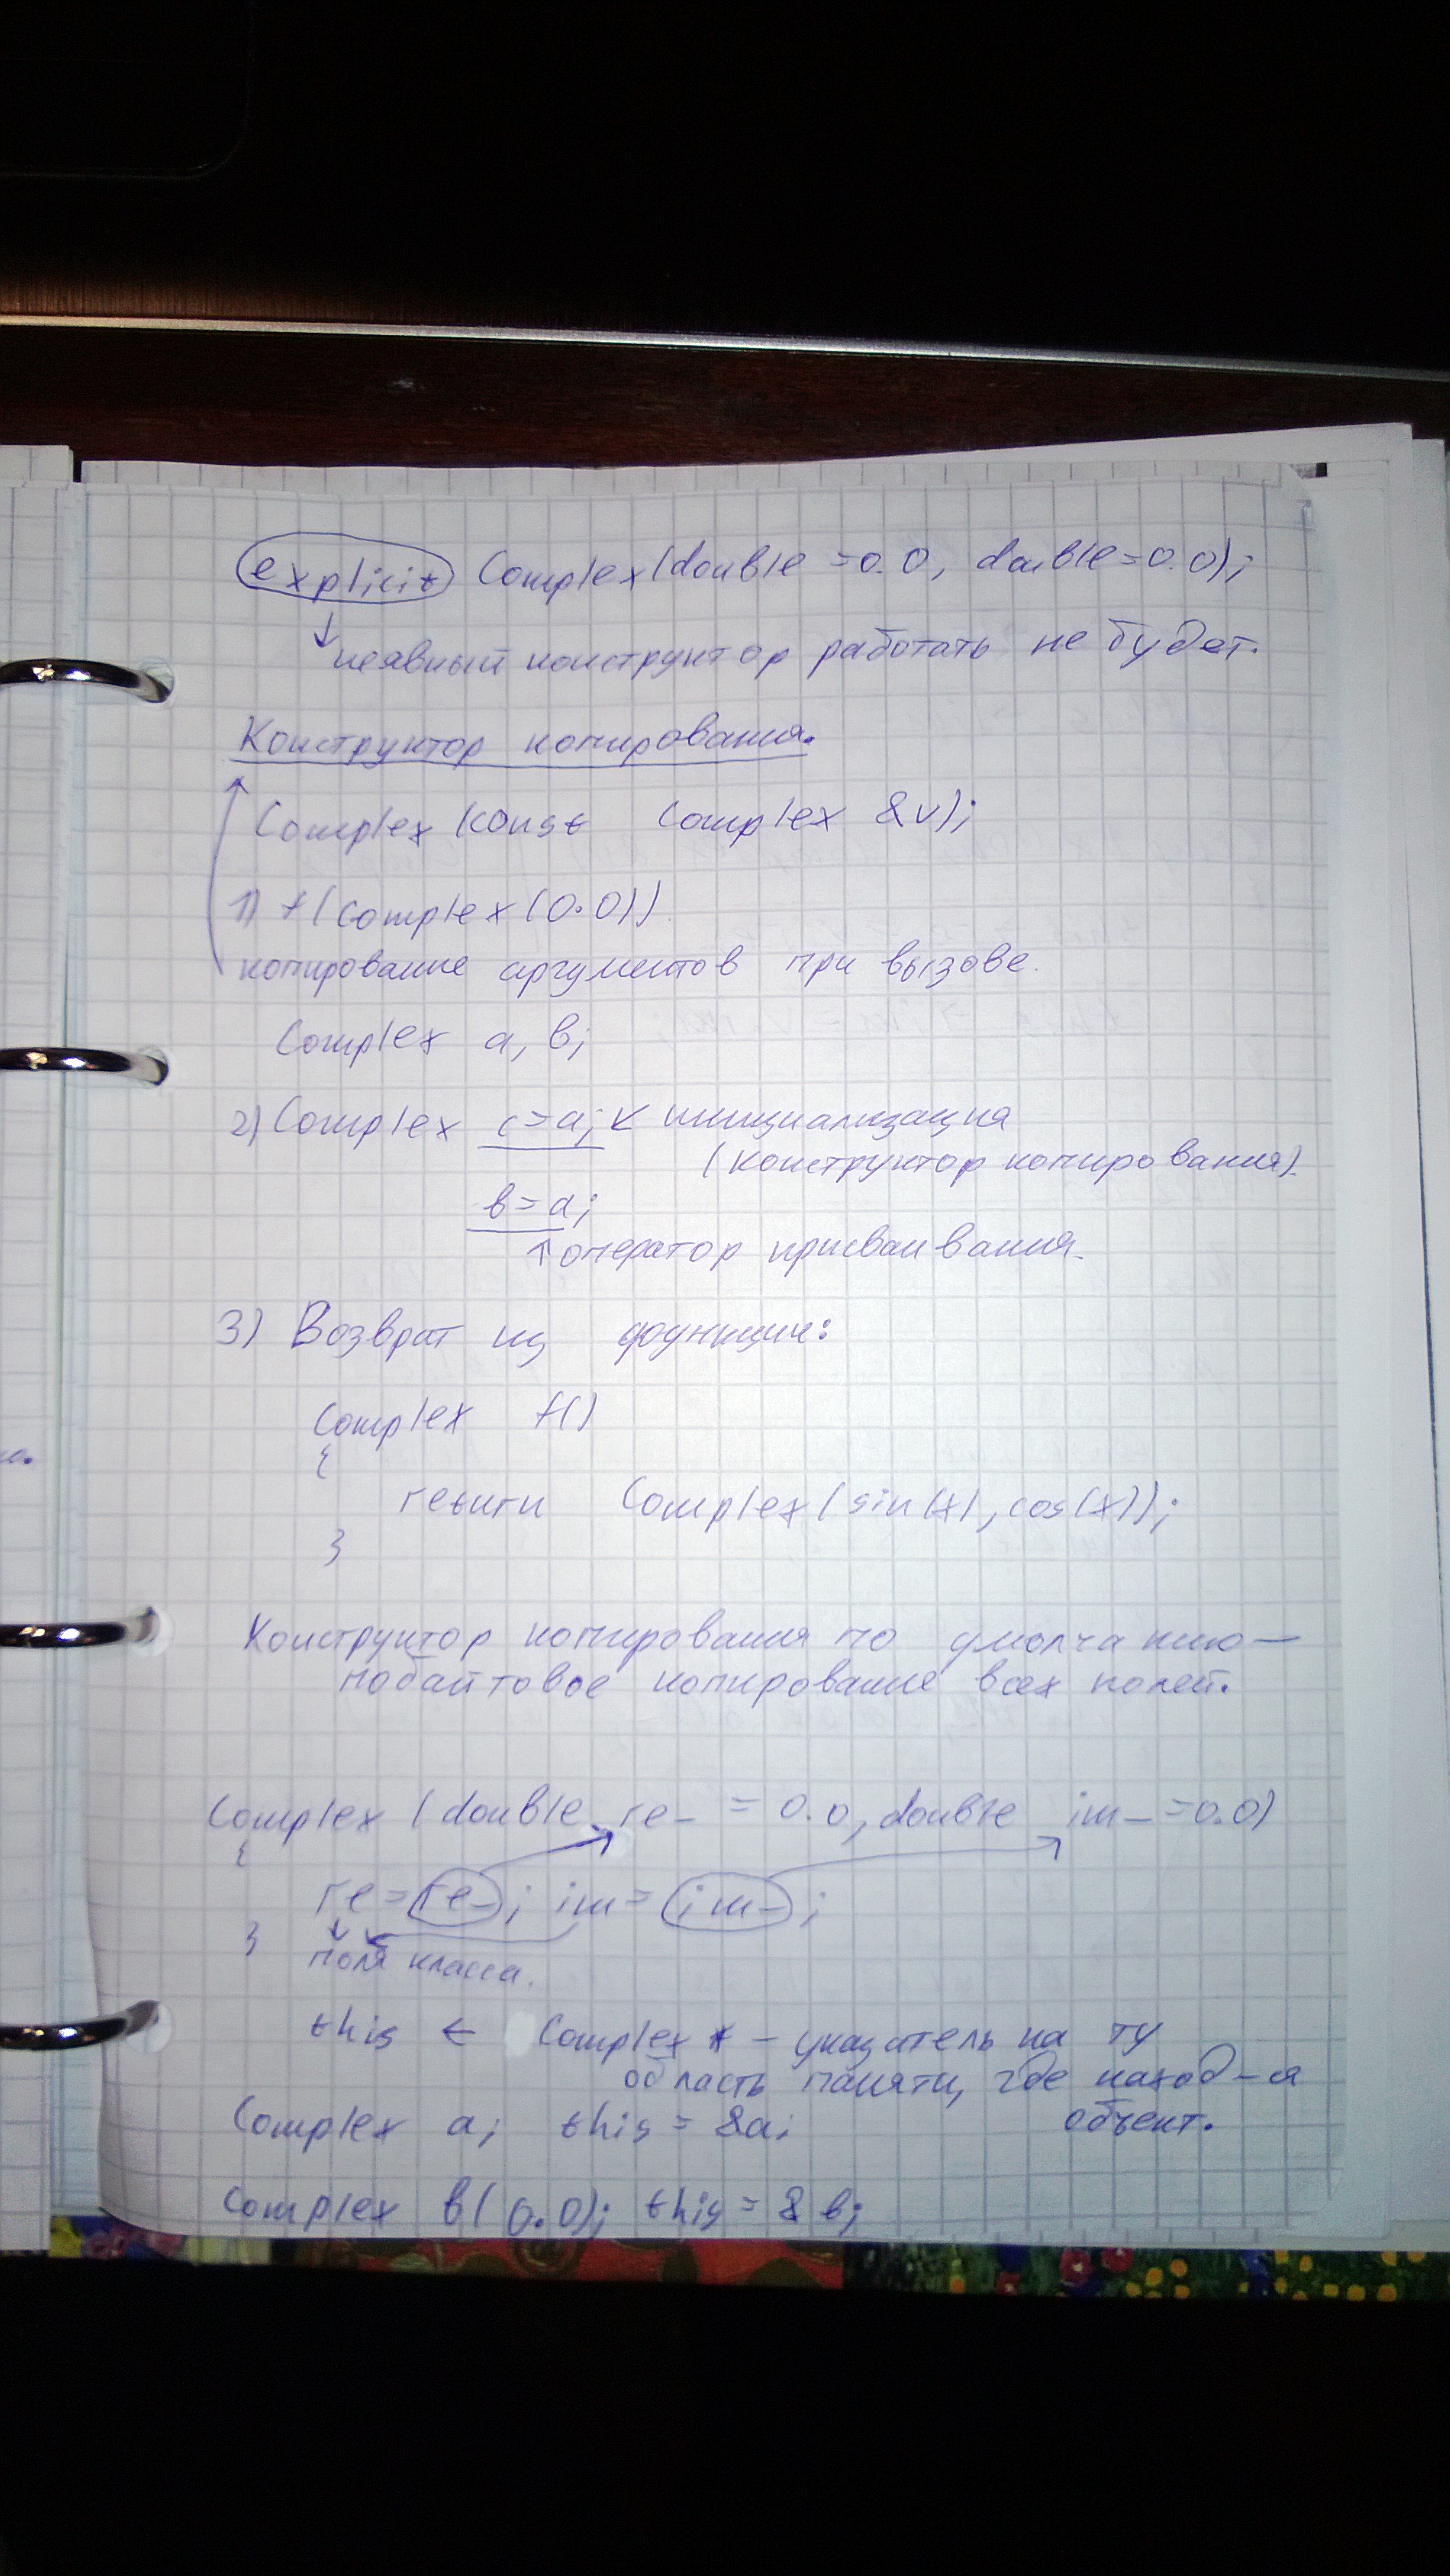 explicit Complex(double =0.0, double=0.0);
неявный конструктор работать не будет.
Конструктор копирования.
Complex (const Complex &v);
1) f(Complex(0.0))
копирование аргументов при вызове.
Complex a, b;
2) Complex c=a; инициализация
(конструктор копирования).
b=a;
оператор присваивания.
3) Возврат из функции:
Complex f()
{
return Complex(sin(x), cos(x));
}
Конструктор копирования по умолчанию —
побайтовое копирование всех полей.
Complex (double re_ = 0.0, double im_ =0.0)
{
re=re_; im=im_;
}
поля класса.
this ← Complex * – указатель на ту
область памяти, где наход-ся
объект.
Complex a; this = &a;
Complex b(0.0); this = & b;